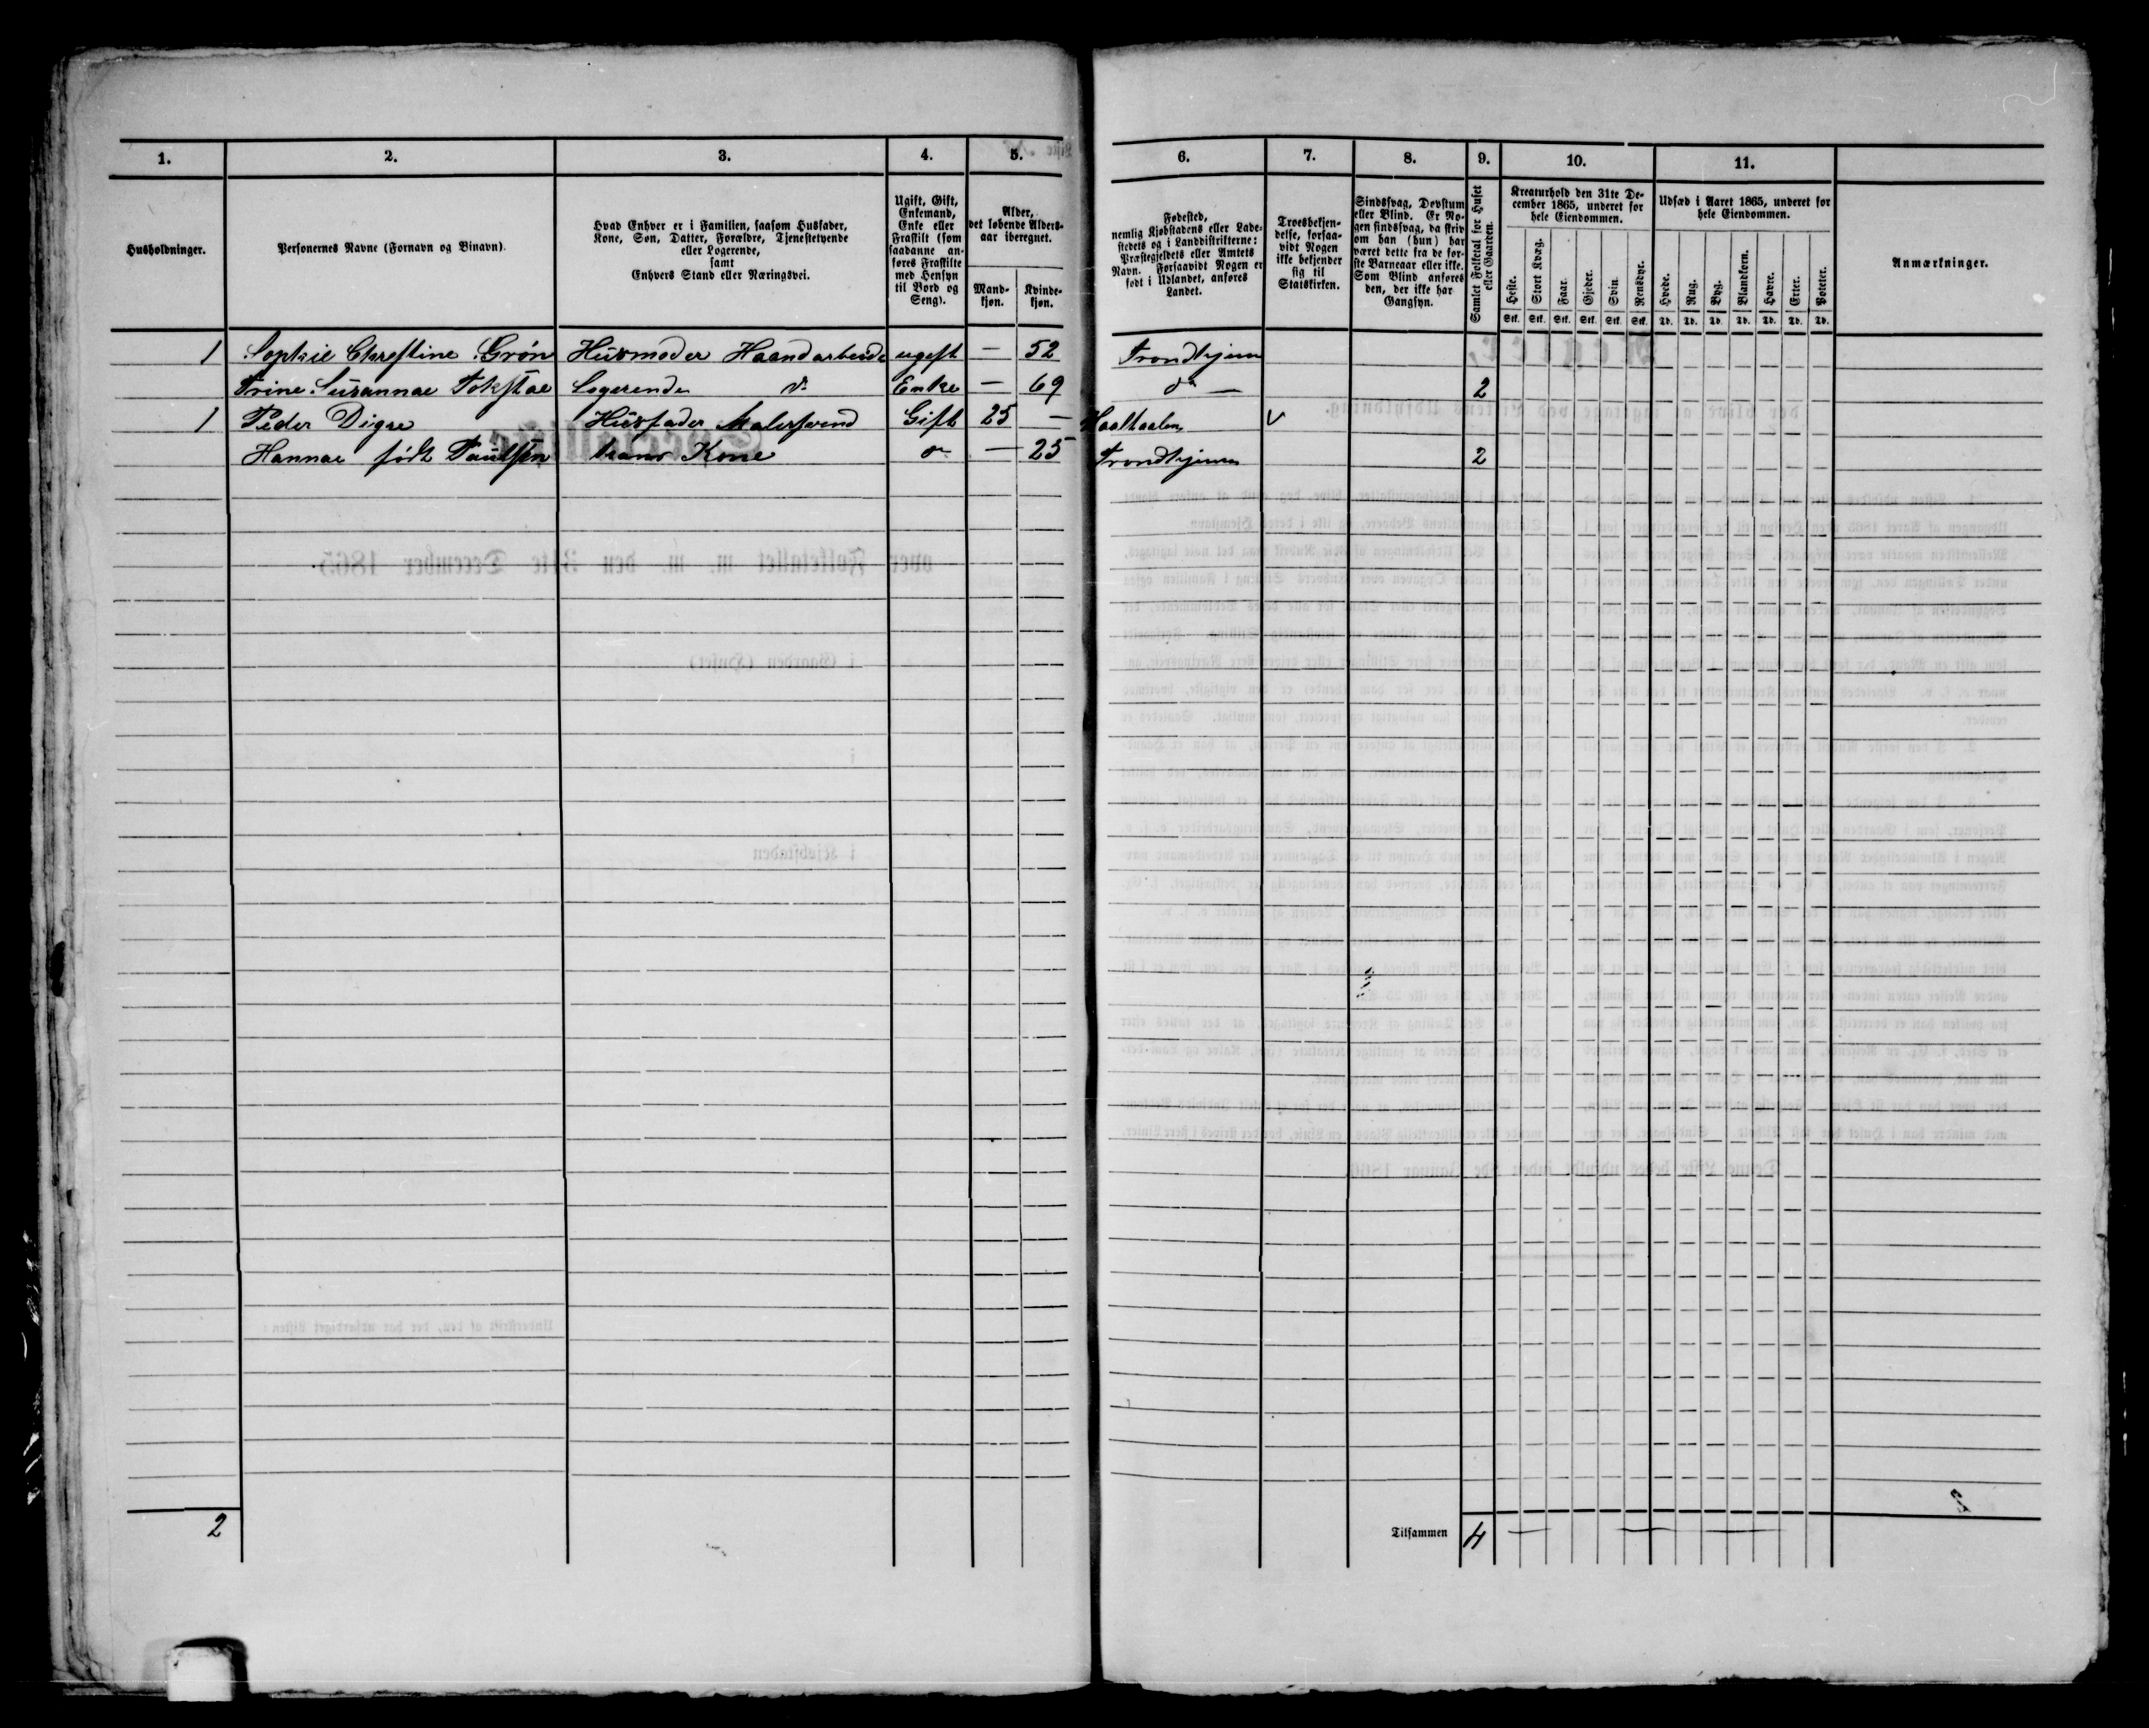 1. 2. 3. 4. 5. 6. 7. 8. 9. 10. 11.
Husholdninger.
Personernes Navne (Fornavn og Binavn).
Hvad Enhver er i Familien, saasom Husfader,
Kone, Søn, Datter, Forældre, Tjenestetyende
eller Logerende,
samt
Enhvers Stand eller Næringsvei.
Ugift, Gift,
Enkemand,
Enke eller
Fraskilt (som
saadanne an-
føres Fraskilte
med Hensyn
til Bord og
Seng).
Alder,
det løbende Alders-
aar iberegnet.
Mand-
kjøn.
Kvinde-
kjøn.
Fødested,
nemlig Kjøbstadens eller Lade-
stedets og i Landdistrikterne:
Præstegjeldets eller Amtets
Navn. Forsaavidt Nogen er
født i Udlandet, anføres
Landet.
Troesbekjen-
delse, forsaa-
vidt Nogen
ikke bekjender
sig til
Statskirken.
Sindssvag, Døvstum
eller Blind. Er No-
gen sindssvag, da skriv
om han (hun) har
været dette fra de før-
ste Barneaar eller ikke.
Som Blind anføres
den, der ikke har
Gangsyn.
Samlet Folketal for Huset
eller Gaarden.
Kreaturhold den 31te De-
cember 1865, underet for
hele Eiendommen.
Heste. Stort Kvæg. Faar. Gjeder. Svin. Rensdyr.
Stk. Stk. Stk. Stk. Stk. Stk.
Udsæd i Aaret 1865, underet for
hele Eiendommen.
Hvede. Rug. Byg. Blandkorn. Havre. Erter. Poteter.
Td. Td. Td. Td. Td. Td. Td.
Anmærkninger.
1 Sophie Chrestine Grøn Husmoder Haandarbeide ugift — 52 Trondhjem
Trine Susannae Logerende do Enke — 69 do — 2
1 Peder Digre Husfader Malersvend Gift 25 — Haaltaalen v
Hannae født Paulsen hans Kone do — 25 Trondhjem 2
2 Tilsammen 4